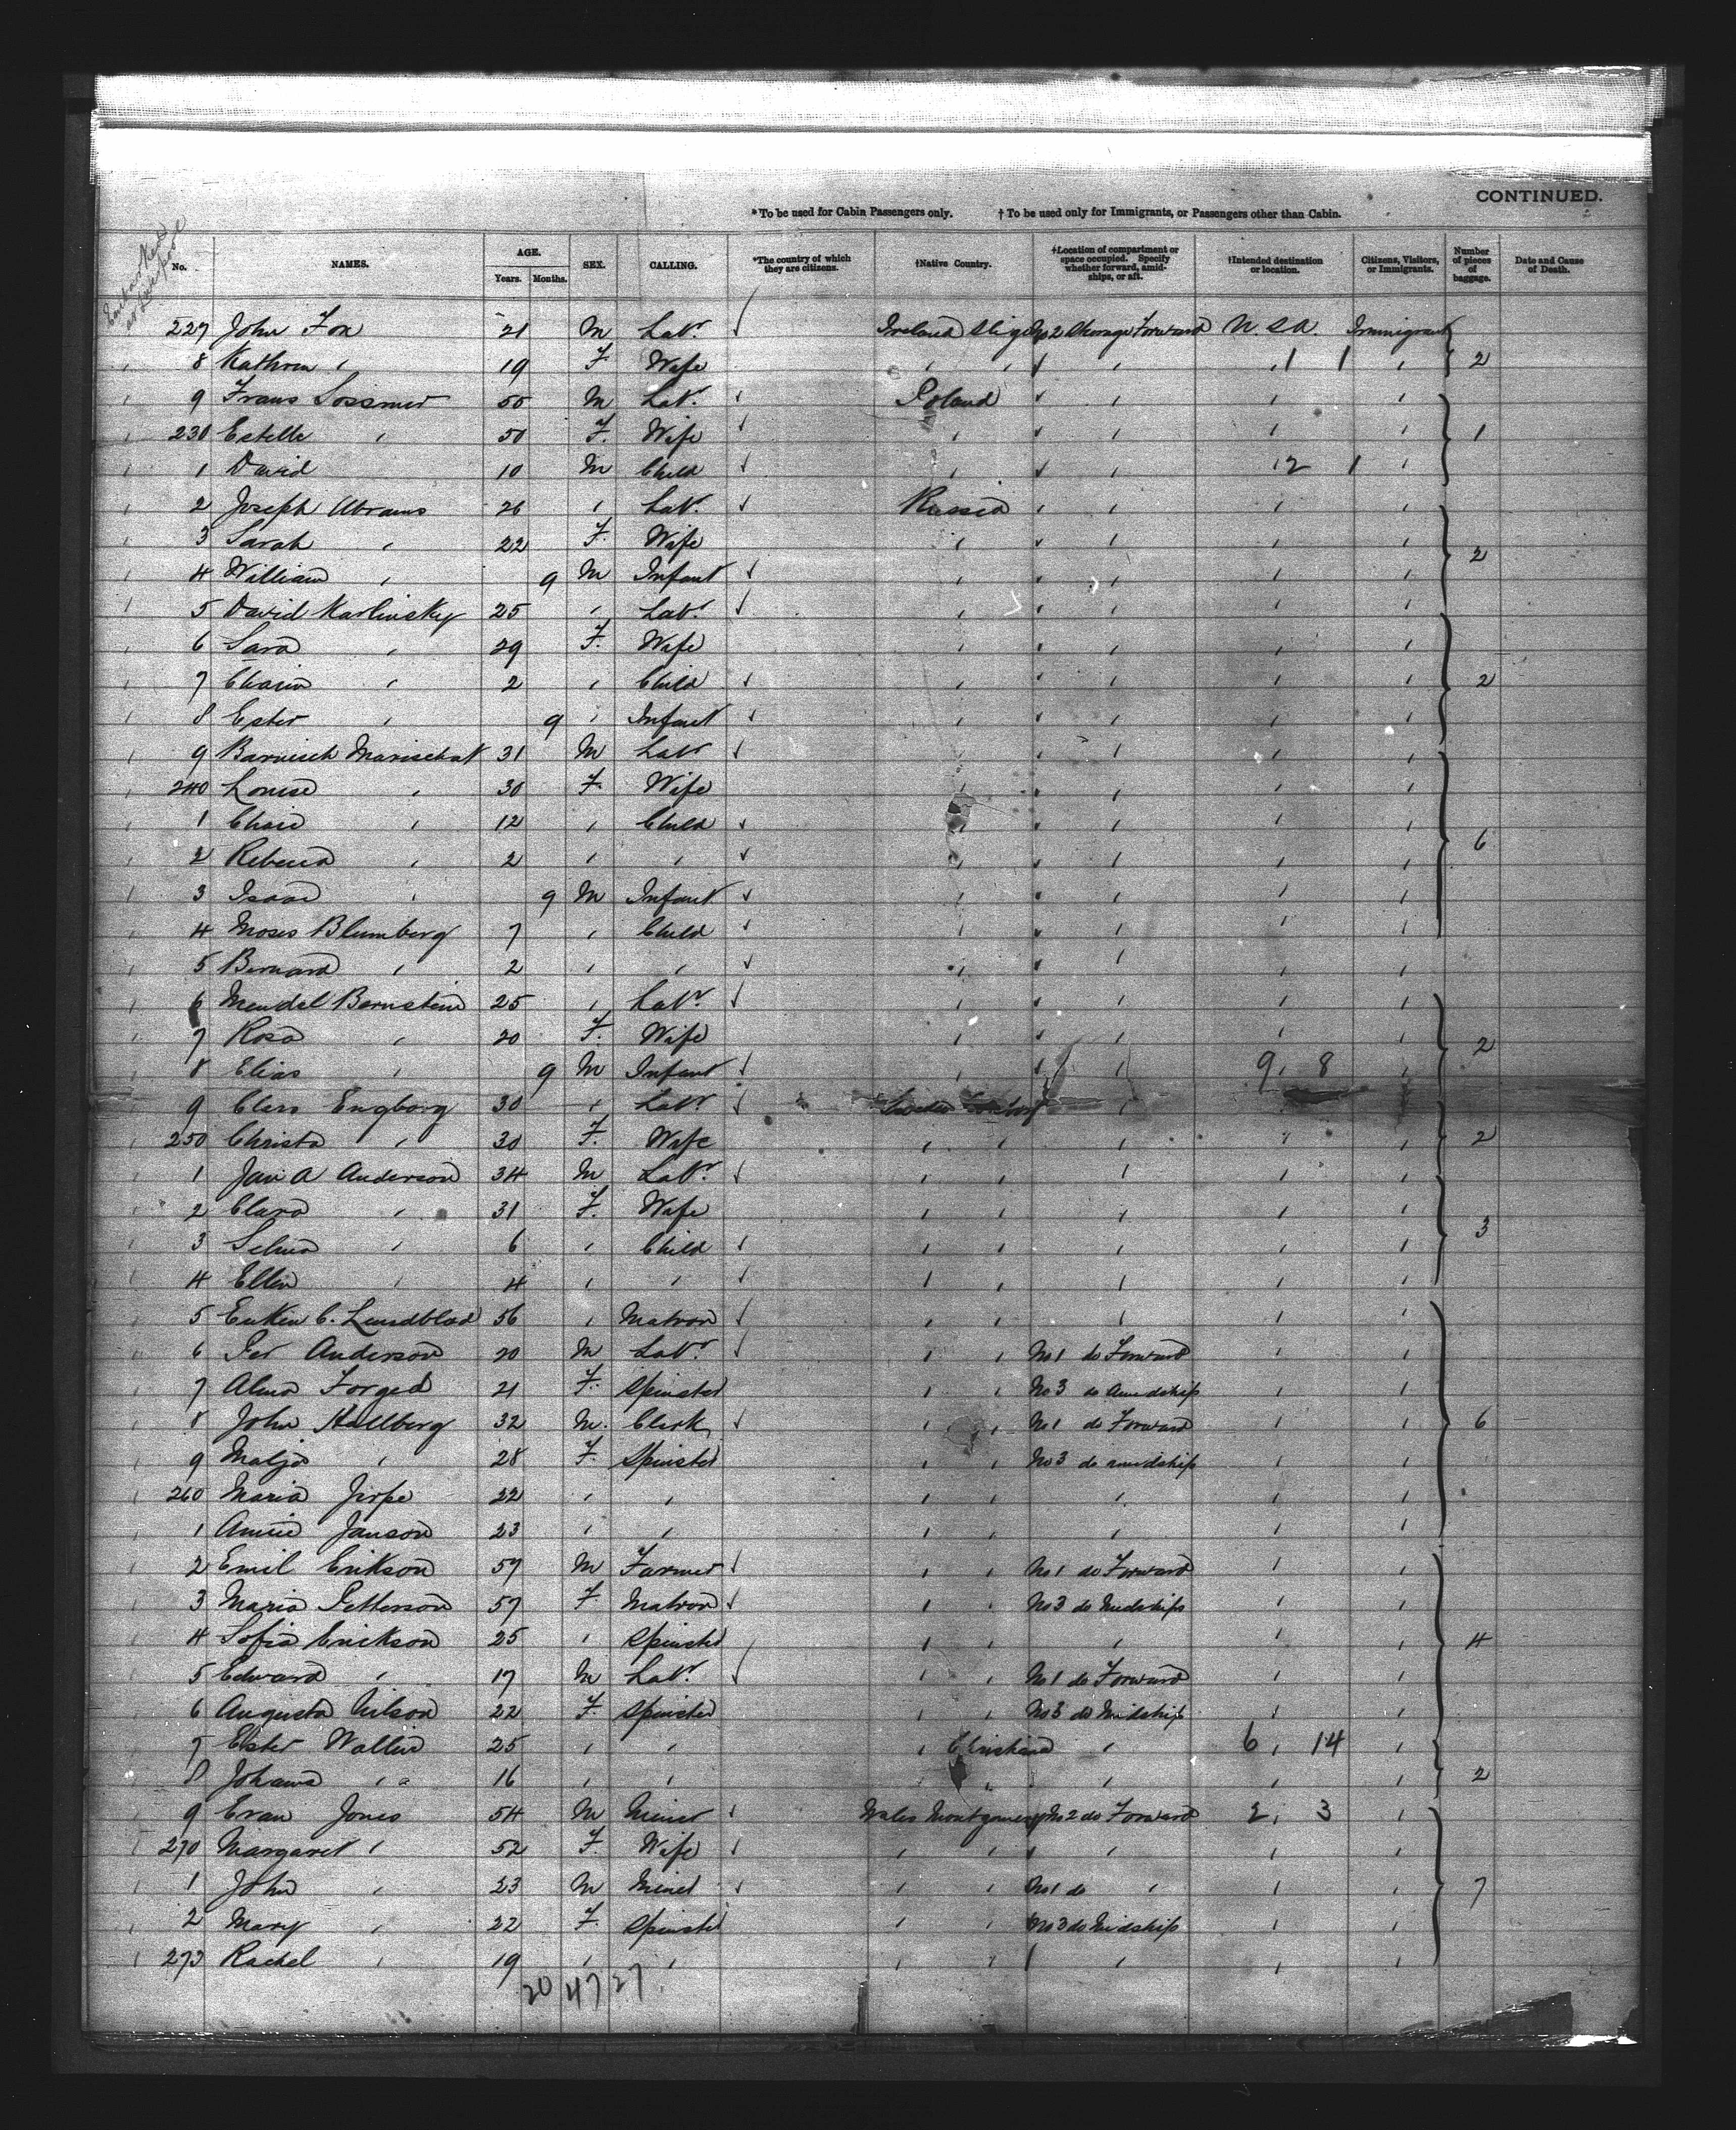 CONTINUED.
*To be used for Cabin Passengers only. † To be used only for Immigrants, or Passengers other than Cabin.
Embarked at Liverpool
No. NAMES. AGE. Years. Months. SEX. CALLING. *The country of which they are citizens. †Native Country. †Location of compartment or space occupied. Specify whether forward, amidships, or aft. †Intended destination or location. Citizens, Visitors, or Immigrants. Number of pieces of baggage. Date and Cause of Death.
227 John Fox 21 M Labr. Ireland Sligo No 2 Steerage Forward U.S.A. Immigrant
8 Kathron " 19 F. Wife " " " " 1 1 " 2
9 Frans 50 M Labr. Poland " " "
230 Estelle " 50 F. Wife " " " " 1
1 David 10 M Child " " " 2 1 "
2 Joseph Abrams 26 " Labr. Russia " " "
3 Sarah " 22 F. Wife " " " " 2
4 William " 9 M Infant " " " "
5 David Karlinsky 25 " Labr. " " "
6 Sara " 29 F. Wife " " " "
7 " 2 " Child " " " " 2
8 Ester " 9 " Infant " " " "
9 31 M Labr " " "
240 Louise " 30 F. Wife " " "
1 " 12 " Child " " " "
2 Rebecca " 2 " " " " " " 6
3 Isaac " 9 M Infant " " " "
4 Moses Blumberg 7 " Child " " " "
5 Bernard " 2 " " " " " "
6 Mendel Bernstein 25 " Labr. " " " "
7 Rosa " 20 F. Wife " " " " 2
8 Elias " 9 M Infant " " 9 " 8 "
9 Engborg 30 " Labr. Sweden " " "
250 Christa " 30 F. Wife " " " " " 2
1 Jan A Anderson 34 M Labr. " " " " "
2 Clara " 31 F. Wife " " " " "
3 Selma " 6 " Child " " " " " 3
4 Ellen " 4 " " " " " " "
5 C. Lundblad 56 " Matron " " " " "
6 Per Anderson 20 M Labr. " " No 1 do Forward " "
7 Alma Forged 21 F. Spinster " " No 3 do Amidship " "
8 John Hallberg 32 M. Clerk " " No 1 do Forward " " 6
9 " 28 F. Spinster " " No 3 do amidship " "
260 Maria 22 " " " " " " "
1 Janson 23 " " " " " " "
2 Emil Erikson 57 M Farmer " " No 1 do Forward " "
3 Maria Petterson 57 F Matron " " No 3 do Midships " "
4 Sofia Erikson 25 " Spinster " " " " " 4
5 Edward " 17 M Labr. " " No 1 do Forward " "
6 Augusta Nilson 22 F. Spinster " " No 3 do Midship " "
7 Ester Wallin 25 " " " " 6 " 14 "
8 Johanna " 16 " " " " " " " 2
9 Evan Jones 54 M Miner Wales Montgomery No 2 do Forward 2 " 3 "
270 Margaret " 52 F. Wife " " " " " "
1 John " 23 M Miner " " No 1 do " " " 7
2 Mary " 22 F. Spinster " " No 3 do Midship " "
273 Rachel " 19 " " " " " " "
20 47 27